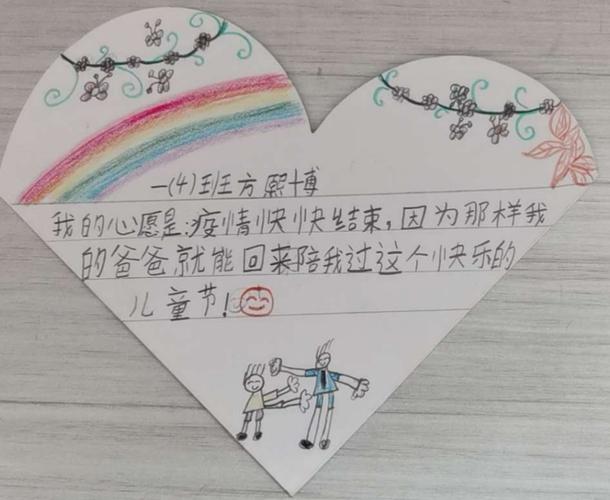 一(4)班方熙博
我的心愿是:疫情快快结束,因为那样我
的爸爸就能回来陪我过这个快乐的
儿童节!